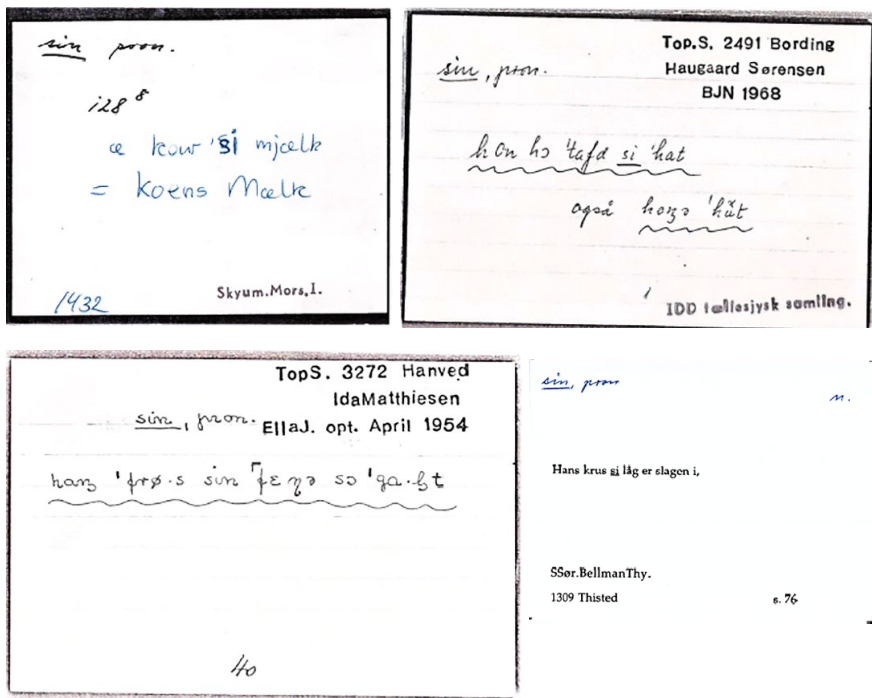 sin pron.
i28 8
æ kouw 'si mjælk
= koens Mælk
1432
Skyum.Mors,I.
Top.S. 2491 Bording
Haugaard Sørensen
BJN 1968
sin, pron.
si 'hat
også
IDD fællesjysk samling.
TopS. 3272 Hanved
IdaMatthiesen
sin, pron. EllaJ. opt. April 1954
sin
40
sin, pron
n.
Hans krus si låg er slagen i,
SSør.BellmanThy.
1309 Thisted s. 76